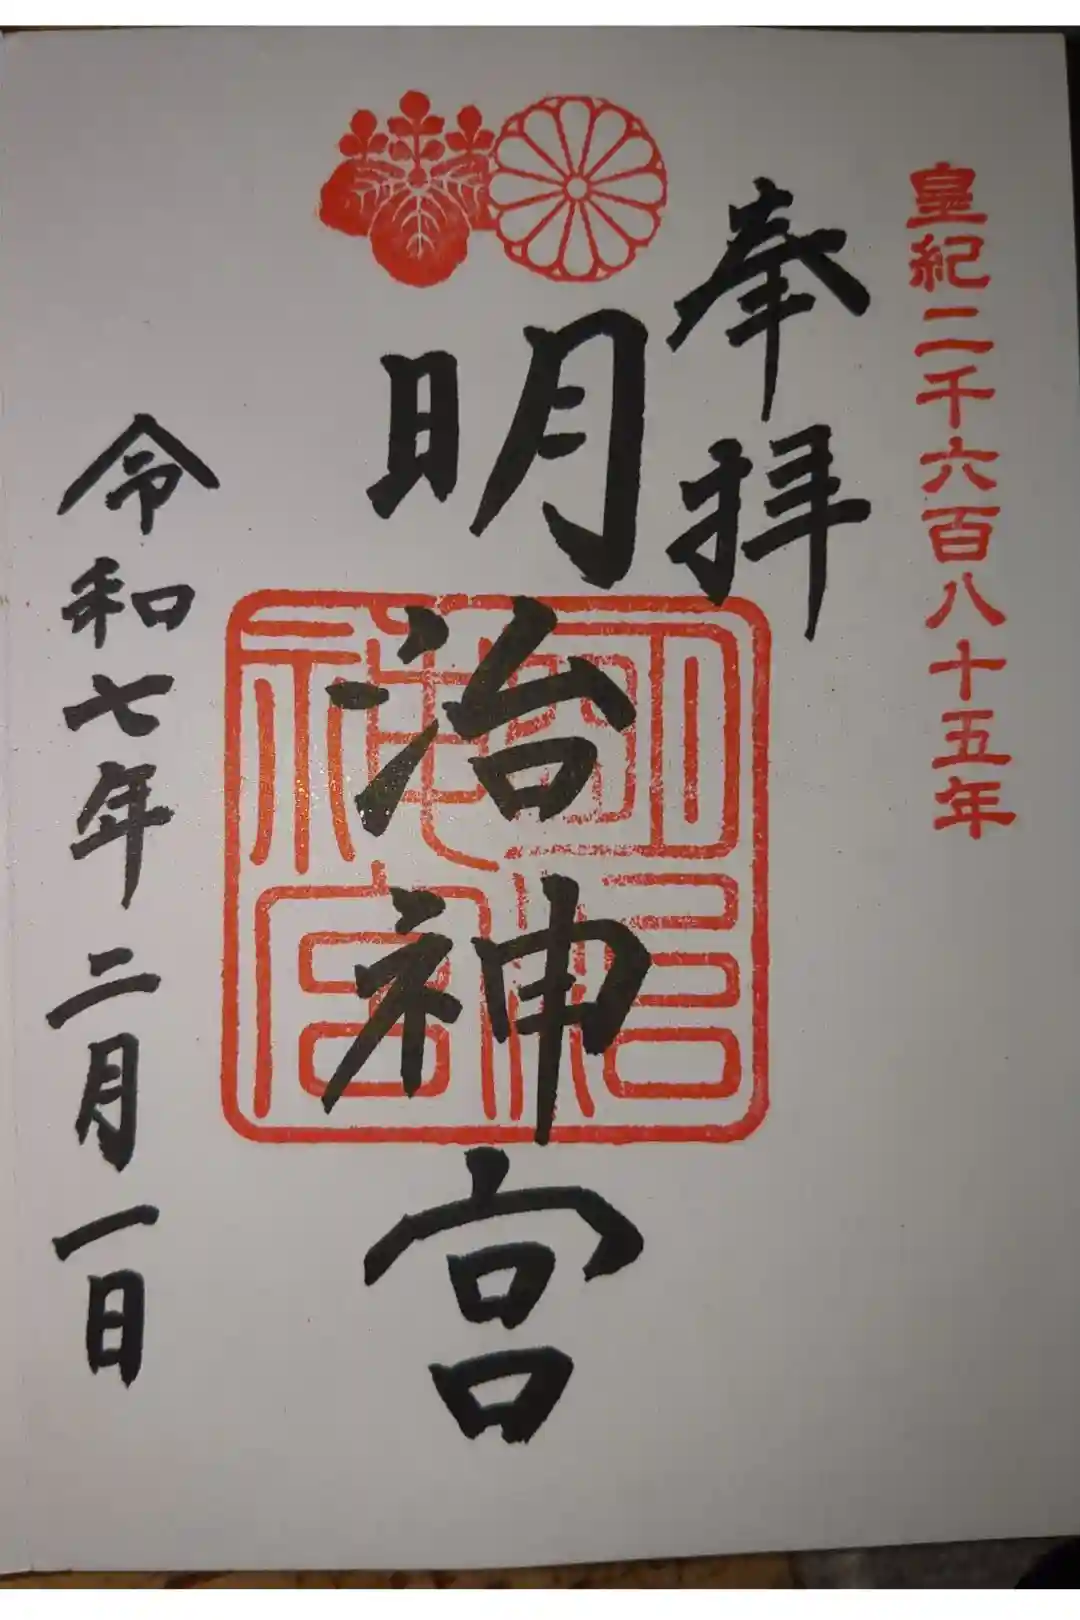 皇紀二千六百八十五年
奉拝
明治神宮
明治神宮
令和七年二月一日